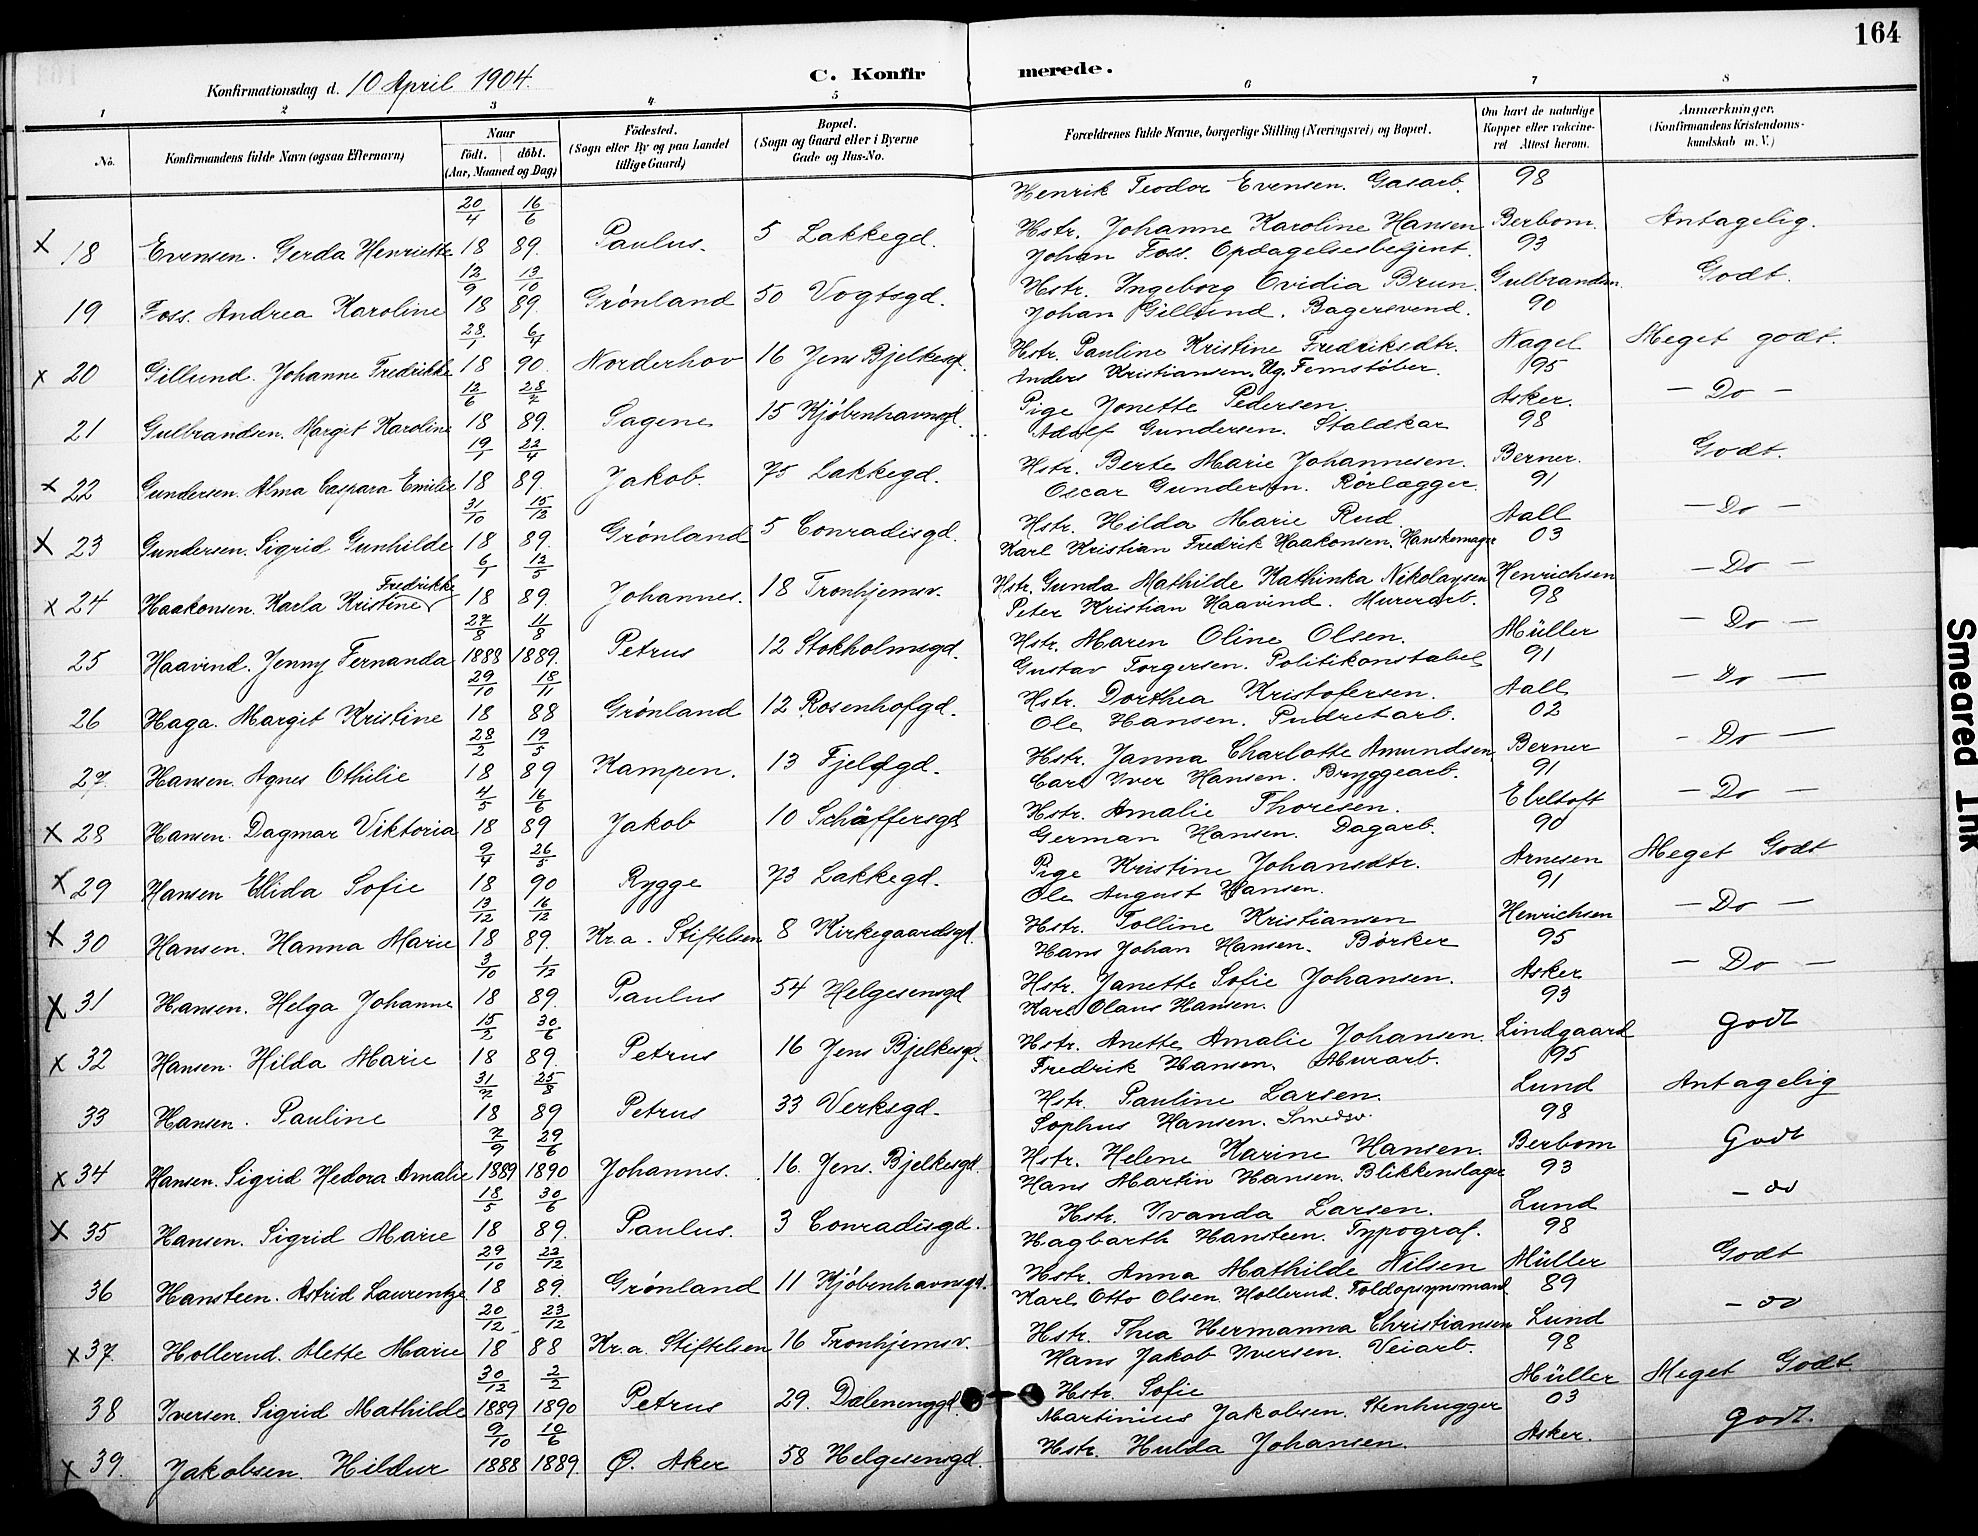 164
Konfirmationsdag d. 10 April 1904.
C. Konfirmerede.
1 2 3 4 5 6 7 8
No. Konfirmandens fulde Navn (ogsaa Efternavn) Naar födt. döbt. (Aar, Maaned og Dag) Födested. (Sogn eller By og paa Landet tillige Gaard) Bopæl. (Sogn og Gaard eller i Byerne Gade og Hus-No. Forældrenes fulde Navne, borgerlige Stilling (Næringsvei) og Bopæl. Om havt de naturlige Kopper eller vakcineret Attest herom. Anmærkninger. (Konfirmandens Kristendomskundskab m. V.)
20/4 16/6 Henrik Teodor Evensen. Gasarb. 98
x 18 Evensen. Gerda Henriette 18 89. Paulus. 5 Lakkegd. Hstr. Johanne Karoline Hansen Berbom. Antagelig.
12/9 13/10 Johan Foss. Opdagelsesbetjent. 93
19 Foss. Andrea Karoline 18 89. Grönland 50 Vogtsgd. Hstr. Ingeborg Ovidia Brun. Gulbrandsen Godt.
28/1 6/4 Johan Gillund. Bagersvend. 90
x 20 Gillund. Johanne Fredrikke 18 90. Norderhov 16 Jens Bjelkesgd. Hstr. Pauline Kristine Fredriksdtr. Nagel Meget godt.
12/6 28/7 Anders Kristiansen. Ug. Femstöber. 95
21 Gulbrandsen. Margit Karoline 18 89. Sagene 15 Kjöbenhavnsgd. Pige Jonette Pedersen. Asker. - Do -
19/1 22/4 Adolf Gundersen. Staldkar 98
x 22 Gundersen. Alma Caspara Emilie 18 89. Jakob 75 Lakkegd. Hstr. Berte Marie Johannesen. Berner. Godt.
31/10 15/12 Oscar Gundersen. Rörlægger. 91
x 23 Gundersen. Sigrid Gunhilde 18 89. Grönland 5 Conradisgd. Hstr. Hilda Marie Rud. Aall - Do -
6/1 12/5 Karl Kristian Fredrik Haakonsen. Hanskemager 03
x 24 Haakonsen. Karla Kristine Fredrikke 18 89. Johannes. 18 Tronhjemsv. Hstr. Gunda Mathilde Kathinka Nikolaysen Henrichsen - Do -
27/8 11/8 Peter Kristian Haavind. Murerarb. 98
25 Haavind. Jenny Fernanda 1888 1889. Petrus 12 Stokholmsgd. Hstr. Maren Oline Olsen. Müller - Do -
29/10 18/11 Gustav Torgersen. Politikonstabel 91
26 Haga. Margit Kristine 18 88 Grönland 12 Rosenhofgd. Hstr. Dorthea Kristofersen. Aall - Do -
28/2 19/5 Ole Hansen. Pudretarb. 02
27. Hansen. Agnes Othilie 18 89 Kampen. 13 Fjeldgd. Hstr. Janna Charlotte Amundsen Berner - Do -
4/5 16/6 Carl Iver Hansen. Bryggearb. 91
x 28 Hansen. Dagmar Viktoria 18 89 Jakob 10 Schäffersgd Hstr. Amalie Thoresen. Ebeltoft - Do -
9/4 26/5 German Hansen. Dagarb. 90
x 29 Hansen Ellida Sofie 18 90 Rygge 73 Lakkegd. Pige Kristine Johansdtr. Arnesen Meget Godt
13/12 16/12 Ole August Hansen. 91
x 30 Hansen. Hanna Marie 18 89. Kr.a. Stiftelsen 8 Kirkegaardsgd. Hstr. Tolline Kristiansen Henrichsen - Do -
3/10 1/12 Hans Johan Hansen. Börker 95
x 31 Hansen. Helga Johanne 18 89. Paulus 54 Helgesensgd Hstr. Janette Sofie Johansen. Asker - Do -
15/2 30/6 Karl Olaus Hansen. 93
x 32 Hansen. Hilda Marie 18 89. Petrus 16 Jens Bjelkesgd. Hstr. Anette Amalie Johansen. Lindgaard godt
31/7 25/8 Fredrik Hansen. Murarb. 95
33 Hansen. Pauline 18 89 Petrus 33 Verksgd. Hstr. Pauline Larsen. Lund Antagelig
7/9 29/6 Sophus Hansen. Smedsv. 98
x 34 Hansen. Sigrid Hedora Amalie 1889 1890 Johannes. 16. Jens. Bjelkesgd. Hstr. Helene Karine Hansen. Berbom Godt
18/5 30/6 Hans Martin Hansen. Blikkenslager 93
x 35 Hansen. Sigrid Marie 18 89. Paulus. 3 Conradisgd. Hstr. Ivanda Larsen. Lund - do
29/10 22/12 Hagbarth Hansteen. Typograf. 98
36 Hansteen. Astrid Laurentze 18 89. Grönland 11 Kjöbenhavnsgd. Hstr. Anna Mathilde Nilsen Müller Godt
20/12 23/12 Karl Otto Olsen Hollerud. Toldopsynsmand 89
x 37. Hollerud. Alette Marie 18 88 Kr.a. Stiftelsen 16 Tronhjemsv. Hstr. Thea Hermanna Christiansen Lund - do
30/12 2/2 Hans Jakob Iversen. Veiarb. 98
38 Iversen. Sigrid Mathilde 1889 1890 Petrus 29. Dælenenggd. Hstr. Sofie Müller Meget Godt
9/10 10/6 Martinius Jakobsen. Stenhugger 03
x 39. Jakobsen. Hildur 1888 1889. Ø. Aker 58 Helgesensgd. Hstr. Hulda Johansen. Asker. godt.
Smeared Ink